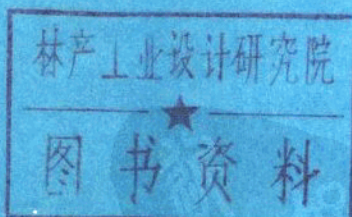 林产工业设计研究院
图书资料